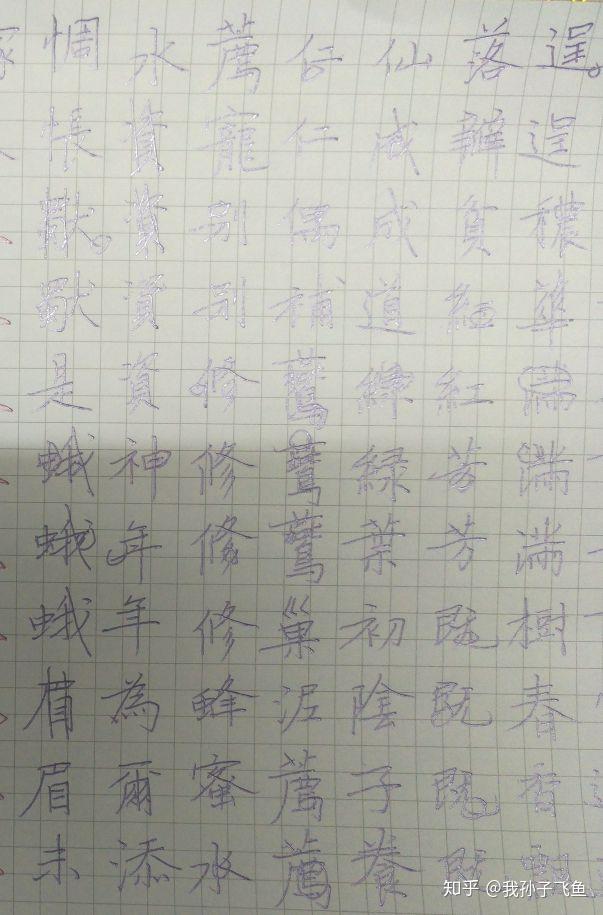 逞逞穠華滿滿滿樹春香飄
落瓣細紅芳芳既既既既
仙成成道綠綠葉初陰子養
仁仁偶補鶯鶯鶯巢泥薦薦
薦寵別別修修修修蜂蜜水
水資資資資神年年為爾添
惆悵獃獃是蛾蛾蛾眉眉未
知乎 @我孙子飞鱼